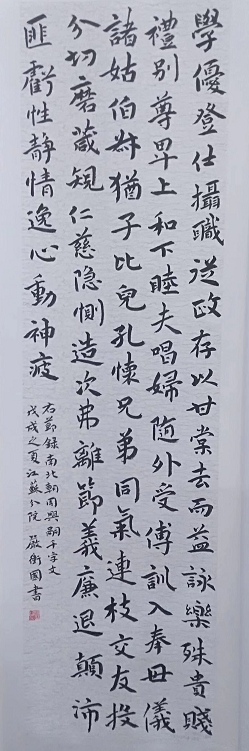 學優登仕攝職從政存以甘棠去而益詠樂殊貴賤
禮別尊卑上和下睦夫唱婦隨外受傅訓入奉母儀
諸姑伯叔猶子比兒孔懷兄弟同氣連枝交友投
分切磨葴規仁慈隐惻造次弗離節義廉退顛沛
匪虧性靜情逸心動神疲
右節錄南北朝周興嗣千字文
戊戌之夏江蘇分院 嚴衛國書